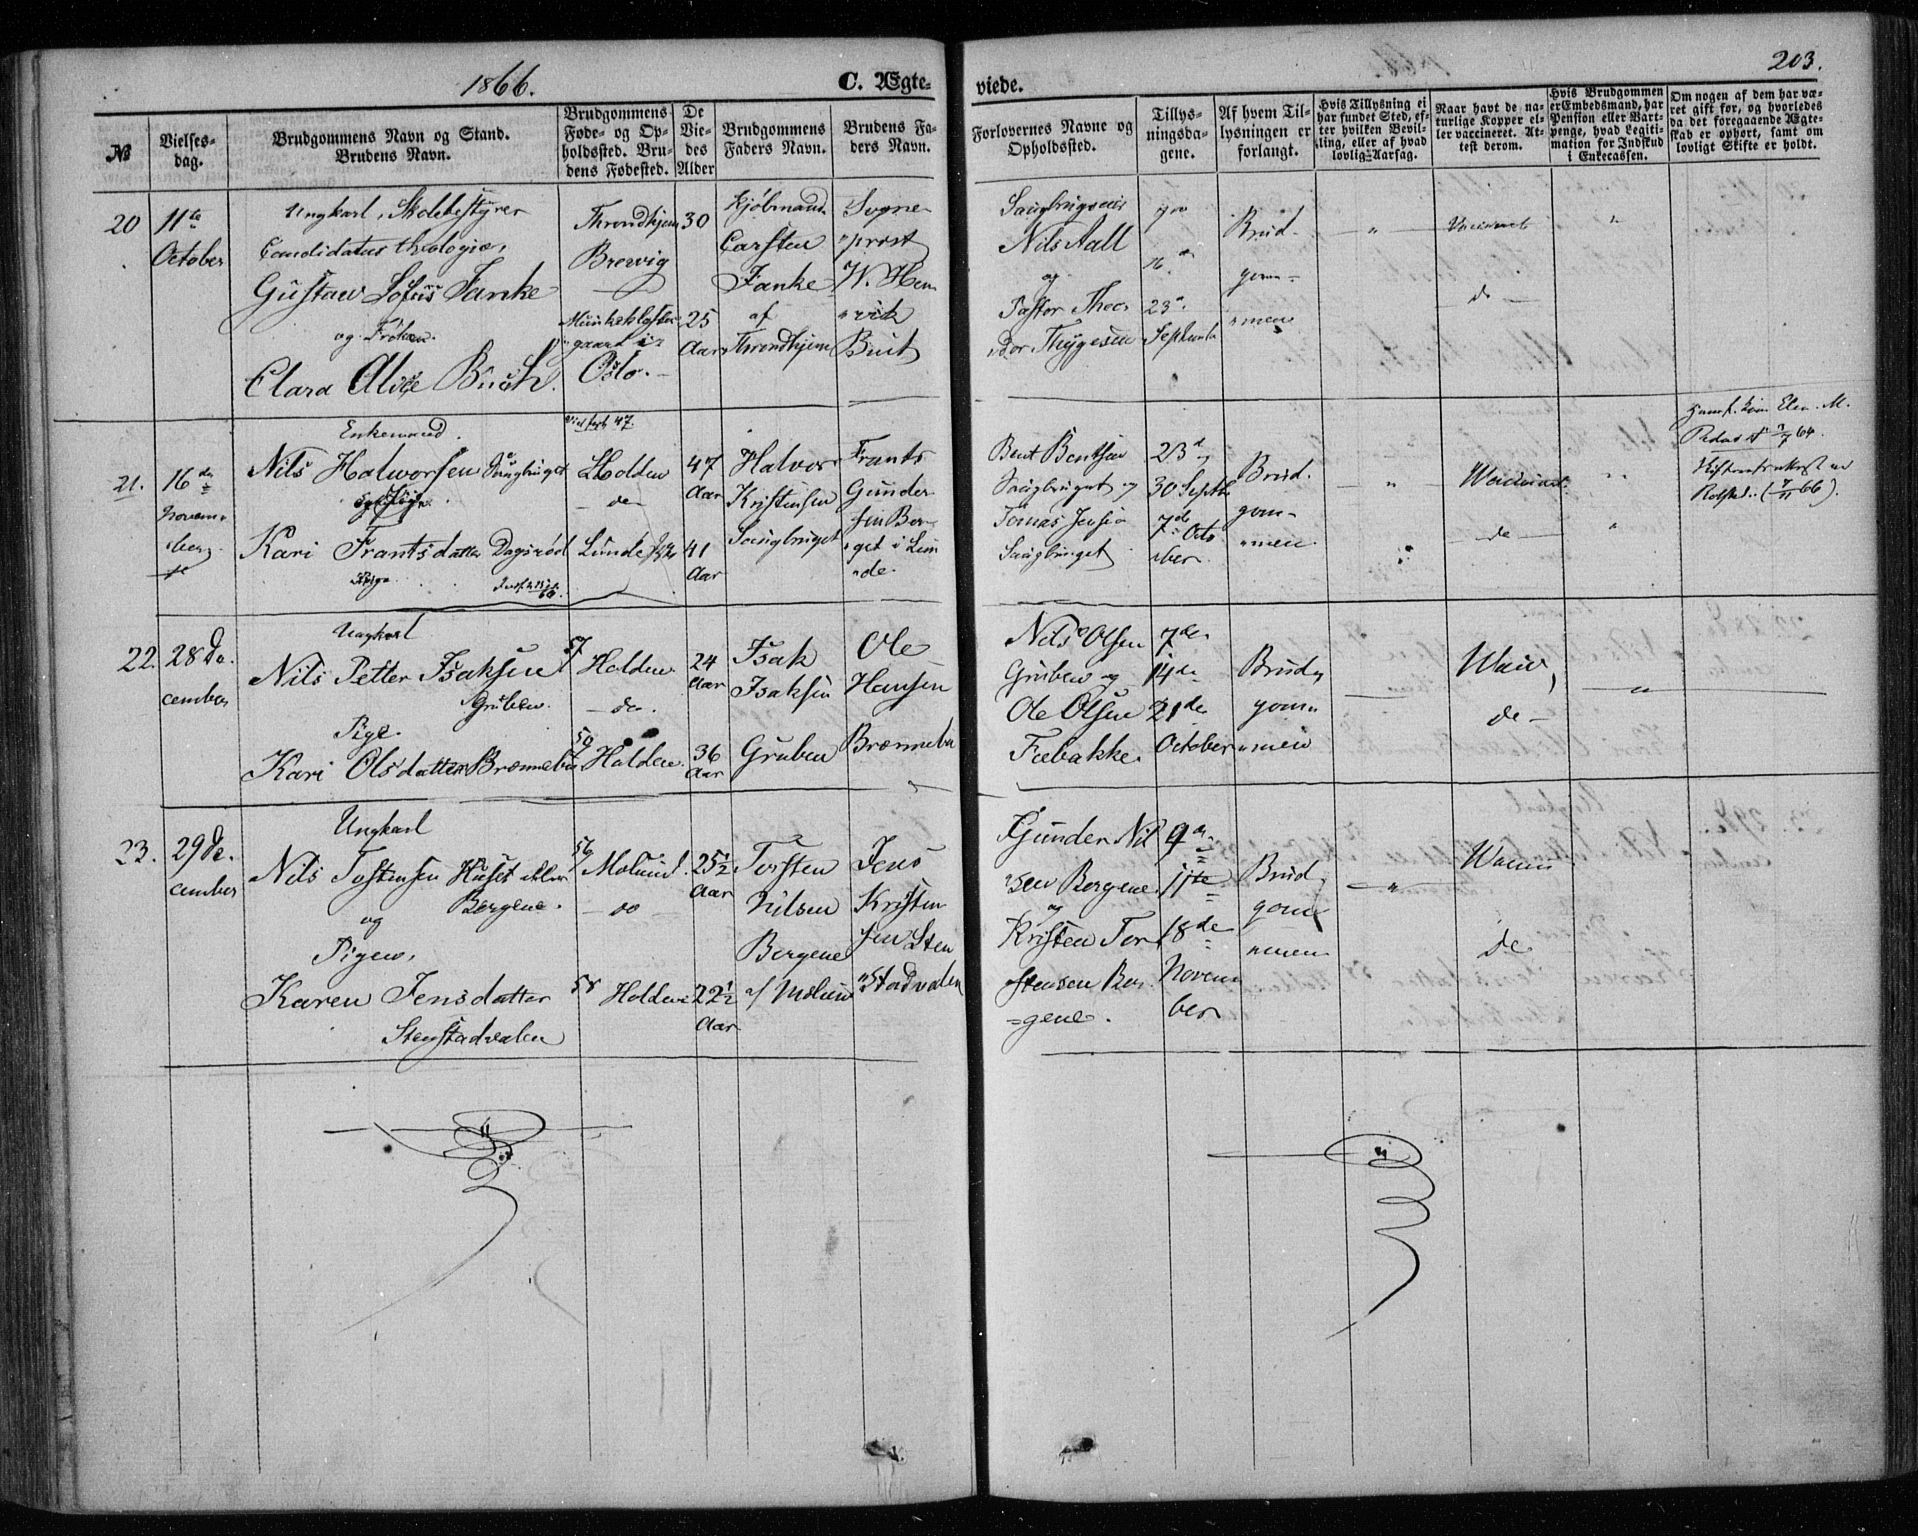 1866.
C. Ægte-
viede.
203.
No
Vielses-
dag.
Brudgommens Navn og Stand.
Brudens Navn.
Brudgommens
Føde- og Op-
holdssted. Bru-
dens Fødested.
De
Vie-
des
Alder
Brudgommens
Faders Navn.
Brudens Fa-
ders Navn.
Forlovernes Navne og
Opholdssted.
Tillys-
ningsda-
gene.
Af hvem Til-
lysningen er
forlangt.
Hvis Tillysning ei
har fundet Sted, ef-
ter hvilken Bevil-
ling, eller af hvad
lovlig Aarsag.
Naar havt de na-
turlige Kopper el-
ler vaccineret. At-
test derom.
Hvis Brudgommen
er Embedsmand, har
Pension eller Vart-
penge, hvad Legiti-
mation for Indskud
i Enkecassen.
Om nogen af dem har væ-
ret gift før, og hvorledes
da det foregaaende Ægte-
skab er ophørt, samt om
lovligt Skifte er holdt.
20
11te
October
Ungkarl, Skolebestyrer
Candidatus theologiæ,
Gustav Sofus Janke
og Frøken
Clara Alvide Buch.
Throndhjem
Brevig
Munkekloster
gaard i
Oslo.
30
25
Aar
Kjøbmand
Carsten
Janke
af
Throndhjem
Sogne-
prost
W. Hen-
rich
Buch
Saugbrugseier
Nils Aall
og
Pastor Theo-
dor Thygesen
16
23
September
Brud-
gom-
men
do
21.
16de
Novem-
ber
Enkemand.
Nils Halvorsen Saugbruget
Kari Frantsdatter Dagsrød
Pige
Holden
do
Lunde
47
Aar
41
Aar
Halvor
Kristensen
Saugbruget
Frants
Gunder-
sen Ber-
get i Lun-
de.
Bent Bentsen
Saugbruget og
Tomas Jensen
Saugbruget
23d
30 Septb
7de Octo
ber
Brud-
gom-
men
Vaccineret
do
22.
28 De-
cember
Ungkarl
Nils Petter Isaksen
Gruben.
Pige.
Kari Olsdatter Brønnebu
57
Holden
do.
59
Holden.
24
Aar
36
Aar
Isak
Isaksen
Gruben
Ole
Hansen
Brønnebu
Nils Olsen
Gruben og
Ole Olsen
Fæbakke.
7de
14de
21de
October
Brud-
gom-
men
Vacc
do
23.
29 De-
cember
Ungkarl
Nils Tostensen Huset eller
Bergene.
og
Pigen,
Karen Jensdatter
Stenstadvalen
56
Melum
do
58
Holden
25½
Aar
22½
Aar
Torsten
Nilsen
Bergene
af Melum
Jens
Kristen
sen Sten
stadvalen
Gunder Nil
sen Bergene
og
Kristen Tor
stensen Ber
gene.
9de
11te
18de
Novem
ber
Brud-
gom
men
do